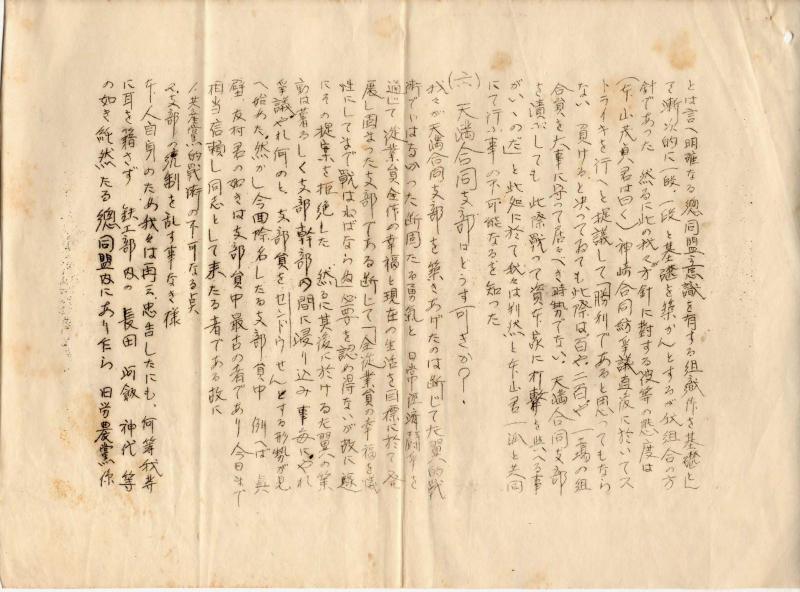 とは言へ明確なる總同盟意識を有する組織体を基礎とし
て漸次的に一段、一段と基礎を築かんとするが我組合の方
針であった 然るに此の我々方針に對する彼等の態度は
(本山茂貞君は曰く)神崎合同紡爭議直後に於いてス
トライキを行へと提議して「勝利であると思ってもなら
ない 負けると決って居ても此際は百や二百や一工場の組
合員を大事に守って居るべき時勢でない、天満合同支部
を潰しても 此際戰って資本家に打撃を與へる事
がいゝのだ」と此処に於て我々は判然と本山君一派と共同
にて行ふ事の不可能なるを知った
(六)天満合同支部はどうす可きか?.
我々が天満合同支部を築きあげたのは断じて左翼的戰
術でいはるゝかった断固たる勇氣と 日常經済闘爭を
通じて 從業員全体の幸福と現在の生活を目標に於て発
展し固まった支部である断じて「全從業員の幸福を犠
牲にしてまで戰はねばならぬ」必要を認め得ないが故に
にその提案を拒絶した 然るに其後に於ける左翼の策
動は著るしく支部幹部の間に浸り込み事毎にやれ
爭議やれ何のと、支部員をセンドウせんとする形勢が見
へ始めた、然かし今回除名したる支部員中 例へば 真
壁、友村君の如きは支部員中最古の者であり今日まで
相当信頼し同志として来たる者である故に
1、共産黨的戰術の不可なる点
2、支部の統制を乱す事なき様
本人自身のため我々は再三忠告したにも、何等我等
に耳を籍さず 鉄工部内の 長田 阿飯 神代 等
の如き純然たる總同盟内にあり乍ら 旧労農黨作